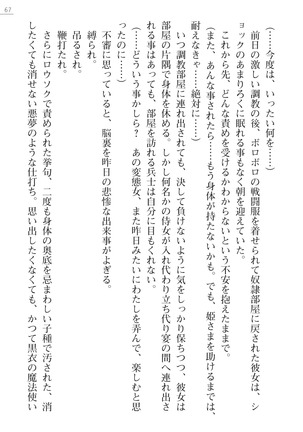 67
（………今度は、いったい何を………）
前日の激しい調教の後、ボロボロの戦闘服を着せられて奴隷部屋に戻された彼女は、シ
ョックのあまりろくに眠れる事もなく朝を迎えていた。
これから先、どんな責めを受けるかわからないという不安を抱えたままで。
（また、あんな事されたら……もう身体が持たないかも。でも、姫さまを助けるまでは、
耐えなきゃ……絶対に……）
いつ調教部屋に連れ出されても、決して負けないように気をしっかり保ちつつ、彼女は
部屋の片隅で身体を休める。しかし何名かの侍女が入れ代わり立ち代わり宴の間へ連れ出さ
れる事はあっても、部屋を訪れる兵士は自分に目もくれない。
（……どういう事かしら？　あの変態女、また昨日みたいにわたしを弄んで、楽しむと思
ったのに……）
不審に思っていると、脳裏を昨日の悲惨な出来事がよぎる。
縛られ。
吊るされ。
鞭打たれ。
さらにロウソクで責められた挙句、二度も身体の奥底を忌まわしい子種で汚された、消
したくても消せない悪夢のような仕打ち。思い出したくなくても、かつて黒衣の魔法使い